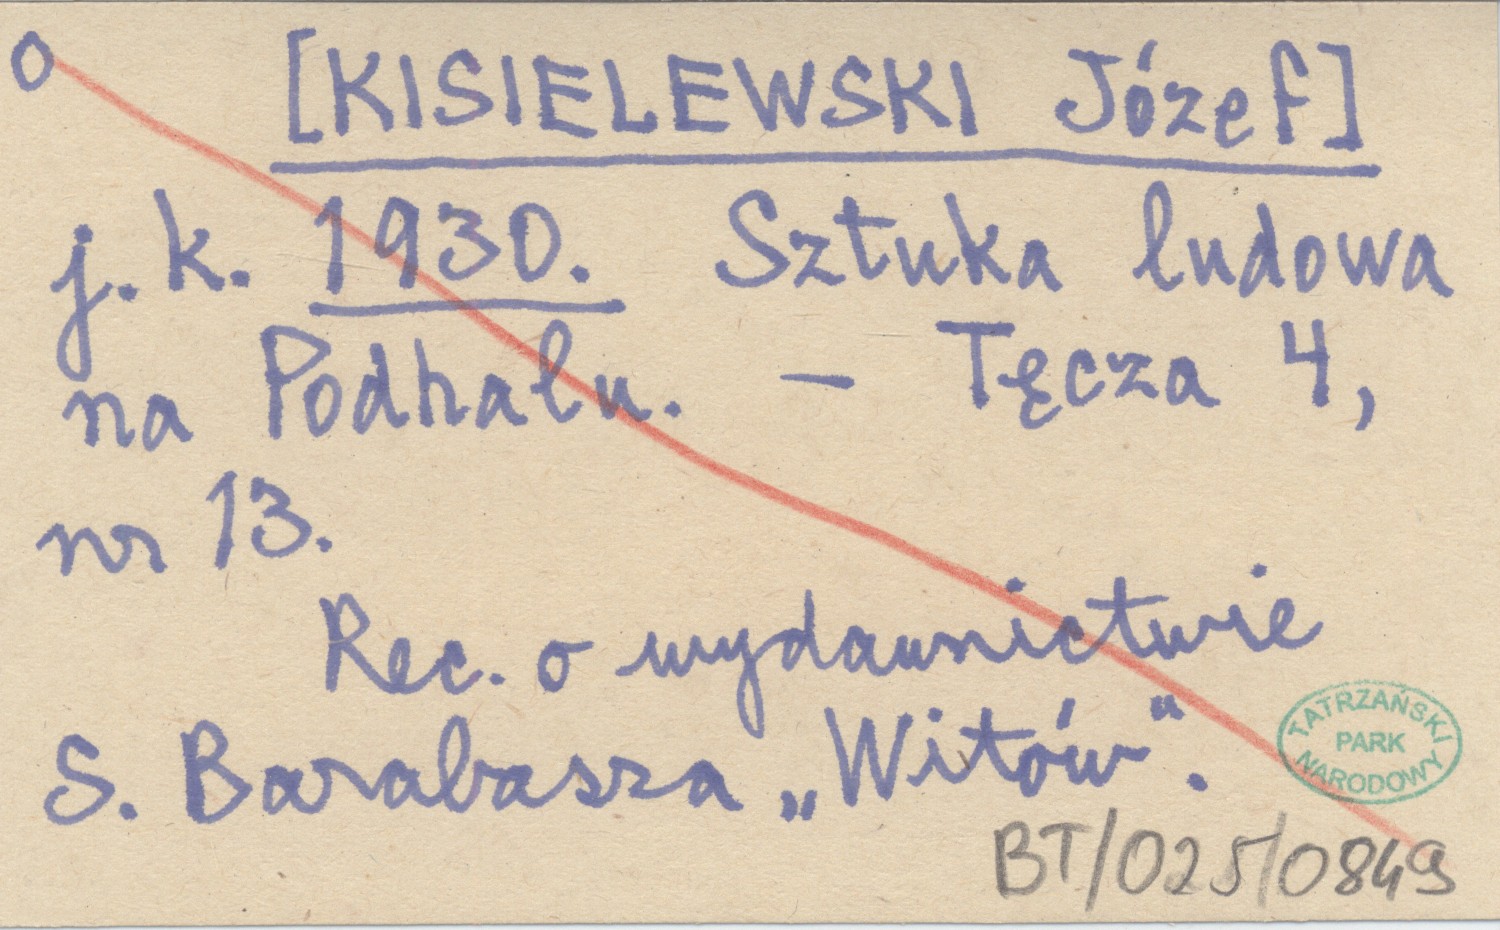 o [KISIELEWSKI Józef]
j. k. 1930. Sztuka ludowa
na Podhalu. – Tęcza 4,
nr 13.
Rec. o wydawnictwie
S. Barabasza „Witów".
TATRZAŃSKI
PARK
NARODOWY
BT/025/0849